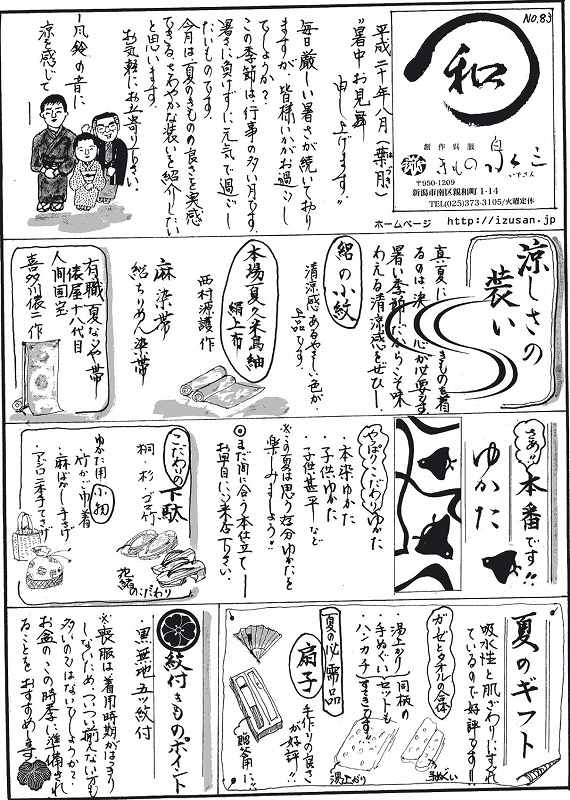 NO.83
和
創作呉服
きもの 泉三
いずさん
〒950-1209
新潟市南区親和町1-14
TEL(025)373-3105/火曜定休
ホームページ http://izusan.jp
平成二十年八月(葉月)
はづき
"暑中お見舞
申し上げます"
毎日厳しい暑さが続いており
ますが、皆様いかがお過ごし
でしょうか?
この季節は、行事の多い月です。
暑さに負けずに元気で過ごし
たいものです。
今月は夏のきものの良さを実感
できるさわやかな装いを紹介したい
と思います。
お気軽にお立寄り下さい。
ー風鈴の音に
涼を感じて
涼しさの
装い
真夏にきものを着
るのは決心が必要です
暑い季節だからこそ味
わえる清涼感をぜひ!
絽の小紋
清涼感あるやさしい色が
上品です。
本場夏久米島紬
絹上布
西村源護作
麻染帯
絽ちりめん染帯
有職 夏なごや帯
俵屋十八代目
人間国宝
喜多川俵二作
さあ!!
本番です!!
ゆかた
やっぱりこだわりゆかた
・本染ゆかた
・子供ゆかた
・子供甚平 など
※この夏は思う存分ゆかたを
楽しみましょう♪
◎まだ間に合う本仕立てー
お早目にご来店下さい。
こだわりの下駄
桐・杉・ゴマ竹
花緒のこだわり
ゆかた用小物
・竹かご巾着
・麻ばかま手さげ
・アジロ二本手てさげ
夏のギフト
吸水性と肌ざわりにすぐれ
ているので好評です!!
ガーゼとタオルの合体
・湯上がり 同柄の
・手ぬぐい セットも
・ハンカチ すてきです
湯上がり
手ぬぐい
夏の必需品
扇子
手作りの良さ
が好評!!
贈答用に!!
紋付きものポイント
・黒無地五ッ紋付
※喪服は着用時期がはっきり
しないため、ついつい揃えない方も
多いのではないでしょうか?
お盆のこの時季に準備され
ることをおすすめします